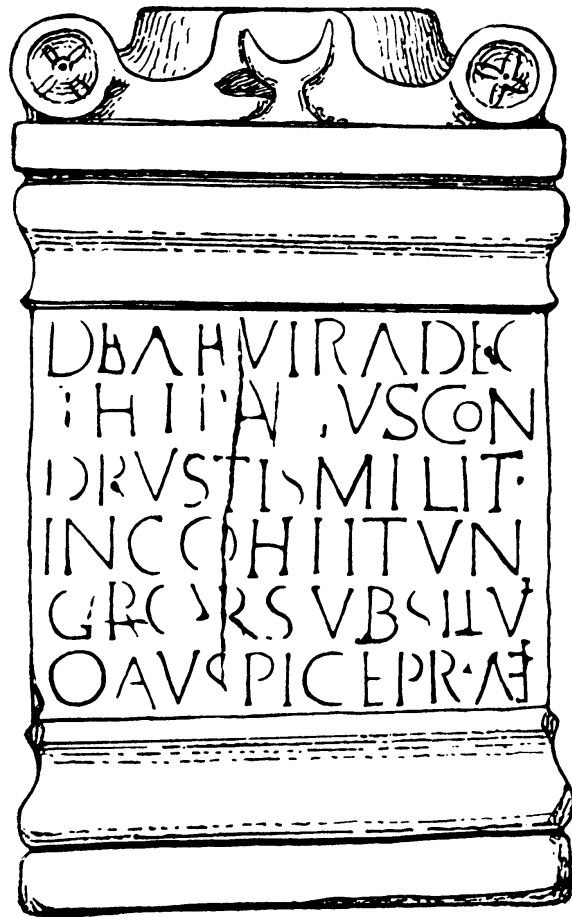 DEAE VIRADEC
THI PA VS CON
DRVSTIS MILIT·
IN COH II TVN
GRO R SVB SILV
O AVSPICE PR·AEF